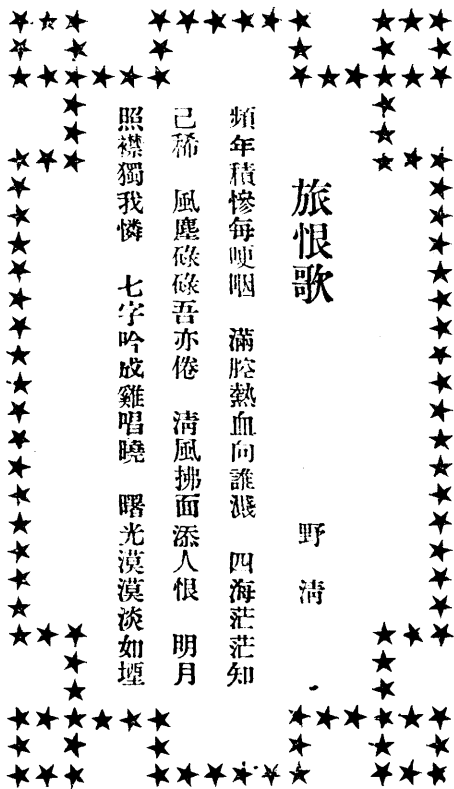 旅恨歌
野淸
頻年積慘每哽咽 滿腔熱血向誰濺 四海茫茫知
己稀 風塵碌碌吾亦倦 淸風拂面添人恨 明月
照襟獨我憐 七字吟成雞唱曉 曙光漠漠淡如堙